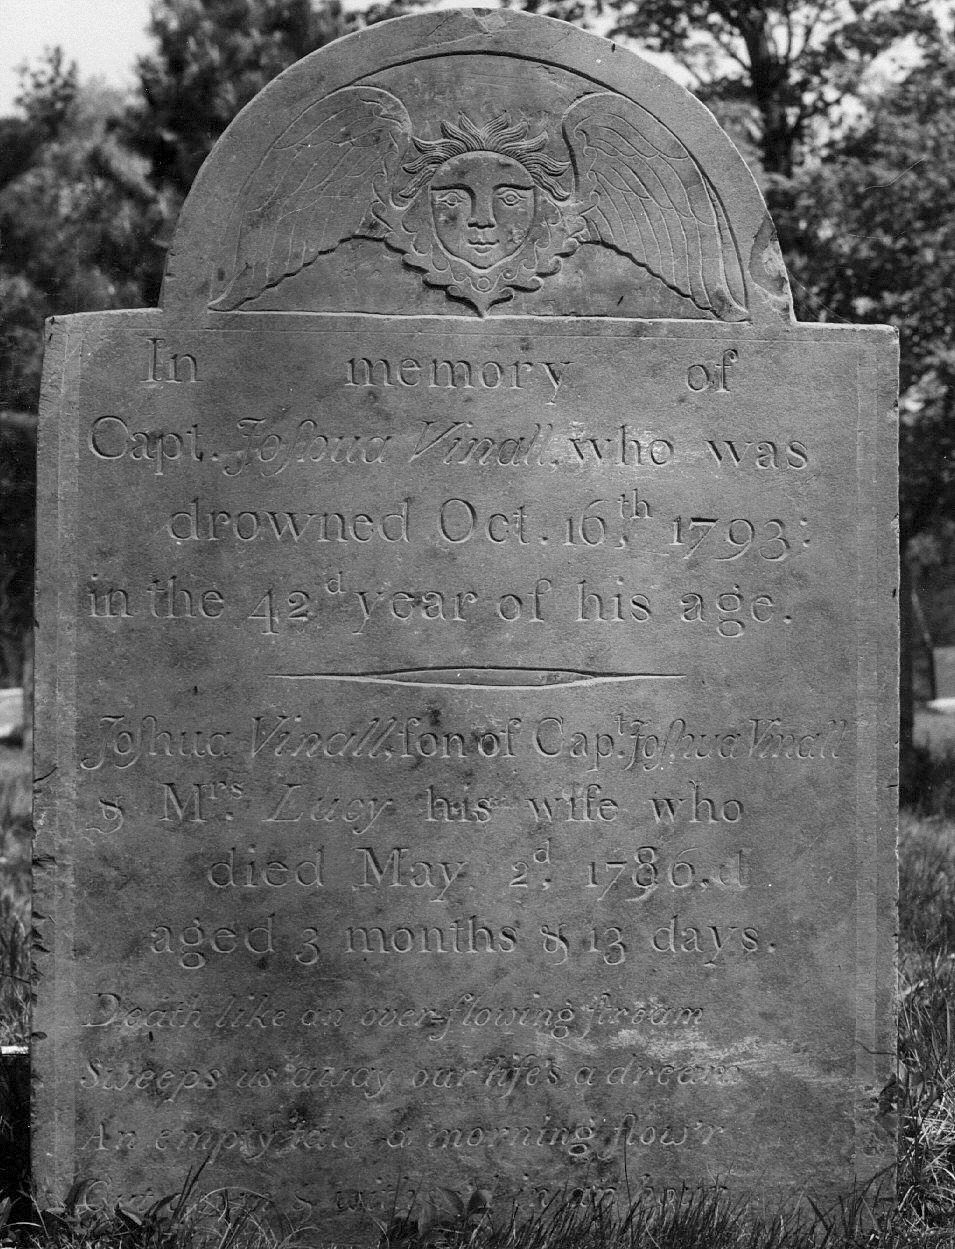 In memory of
Capt. Joſhua Vinall, who was
drowned Oct. 16th. 1793;
in the 42d year of his age.
Joſhua Vinall, ſon of Capt. Joſhua Vinall
& Mrs. Lucy his wife who
died May 2d. 1786.
aged 3 months & 13 days.
Death like an over-flowing ſtream
Sweeps us away our life's a dream
An empty tale a morning flow'r
Cut